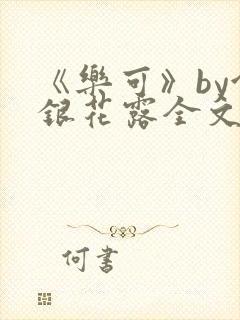 《樂可》by
銀花露全文
何書